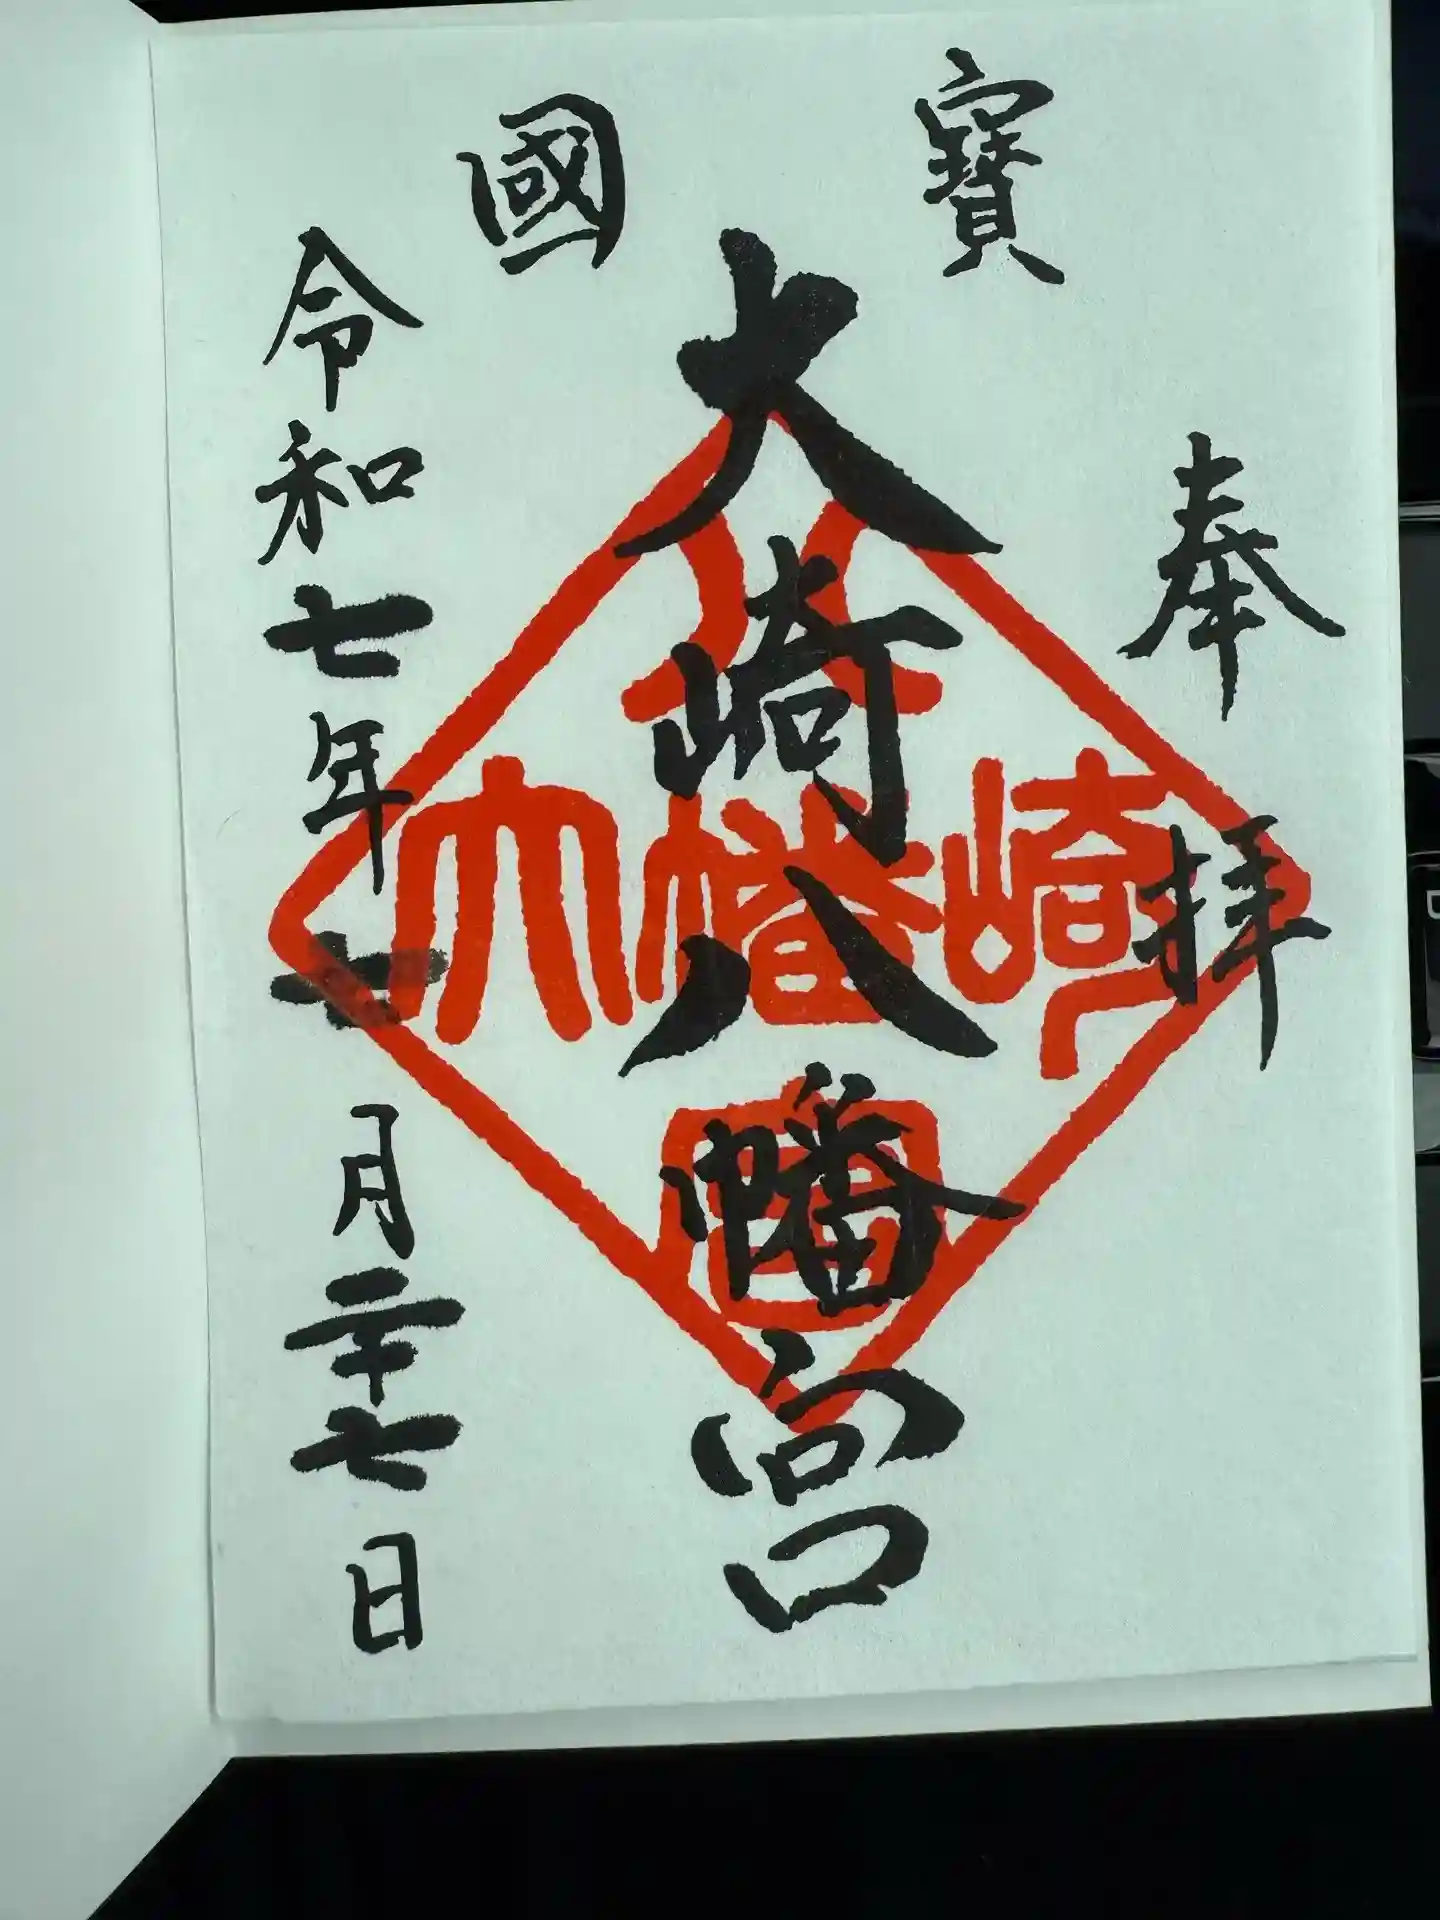 奉拝
寶國
大崎八幡宮
令和七年七月二十七日
大崎八幡宮